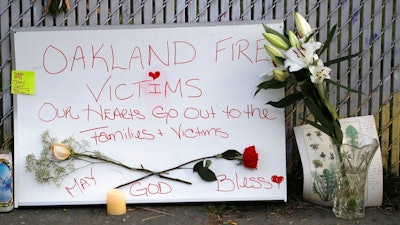 OAKLAND FIRE
VICTIMS
OUR HEARTS GO OUT TO THE
FAMILIES + VICTIMS
MAY GOD Bless